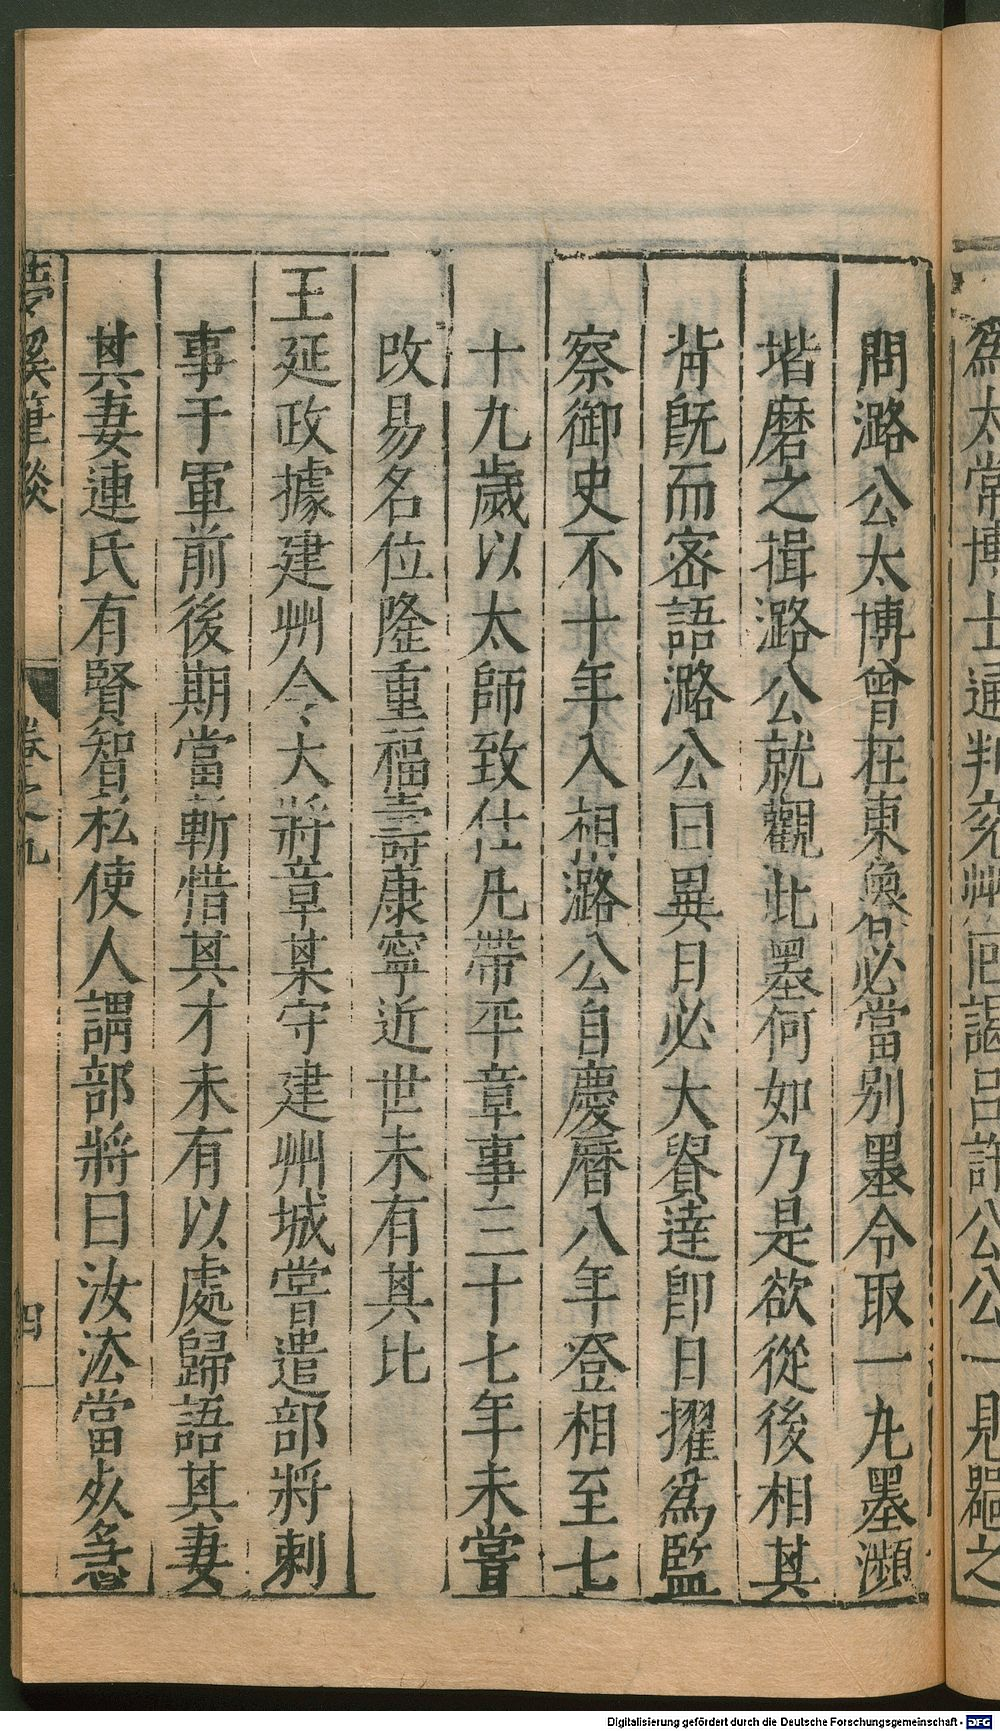 爲太常博士通判兗州回謁呂許公公一見器之
問潞公太博曾在東魯必當别墨令取一丸墨瀕
堦磨之揖潞公就觀此墨何如乃是欲從後相其
背旣而密語潞公曰異日必大貴達卽日擢爲監
察御史不十年入相潞公自慶曆八年登相至七
十九歲以太師致仕凡帶平章事三十七年未嘗
改易名位隆重福壽康寧近世未有其比
王延政據建州令大將章某守建州城嘗遣部將刺
事于軍前後期當斬惜其才未有以處歸語其妻
其妻連氏有賢智私使人謂部將曰汝法當死急
夢溪筆談
卷之九
四
Digitalisierung gefördert durch die Deutsche Forschungsgemeinschaft - DFG